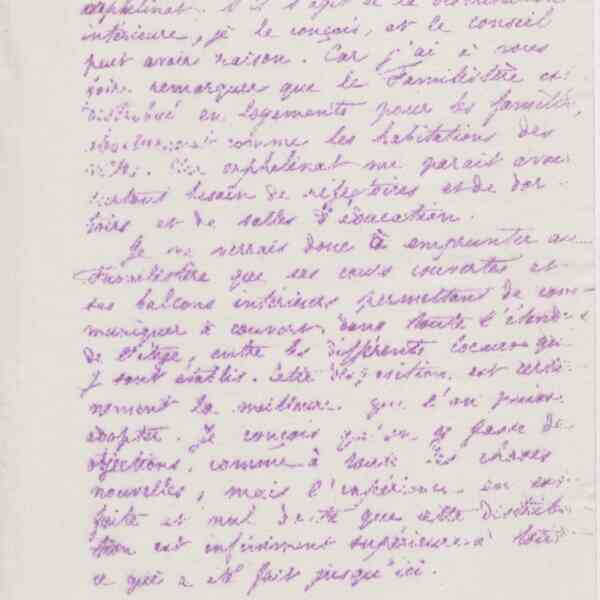 orphelinat. S'il s'agit de la distribution
intérieure, je le conçois, et le conseil
peut avoir raison. Car j'ai à vous
faire remarquer que le Familistère est
distribué en logements pour les familles,
comme les habitations des
villes. Un orphelinat me parait avoir
surtout besoin de réfectoires et de dor-
toirs et de salles d'éducation.
Je ne verrais donc à emprunter au
Familistère que ses cours couvertes et
ses balcons intérieurs permettant de com-
muniquer à couvert dans toute l'étendue
de l'étage, entre les différents locaux qui
y sont établis. Cette disposition est certai-
nement la meilleure que l'on puisse
adopter. Je conçois qu'on y fasse des
objections, comme à toutes les choses
nouvelles, mais l'expérience en est
faite et nul doute que cette distribu-
tion est infiniment supérieure à tout
ce qui a été fait jusqu'ici.